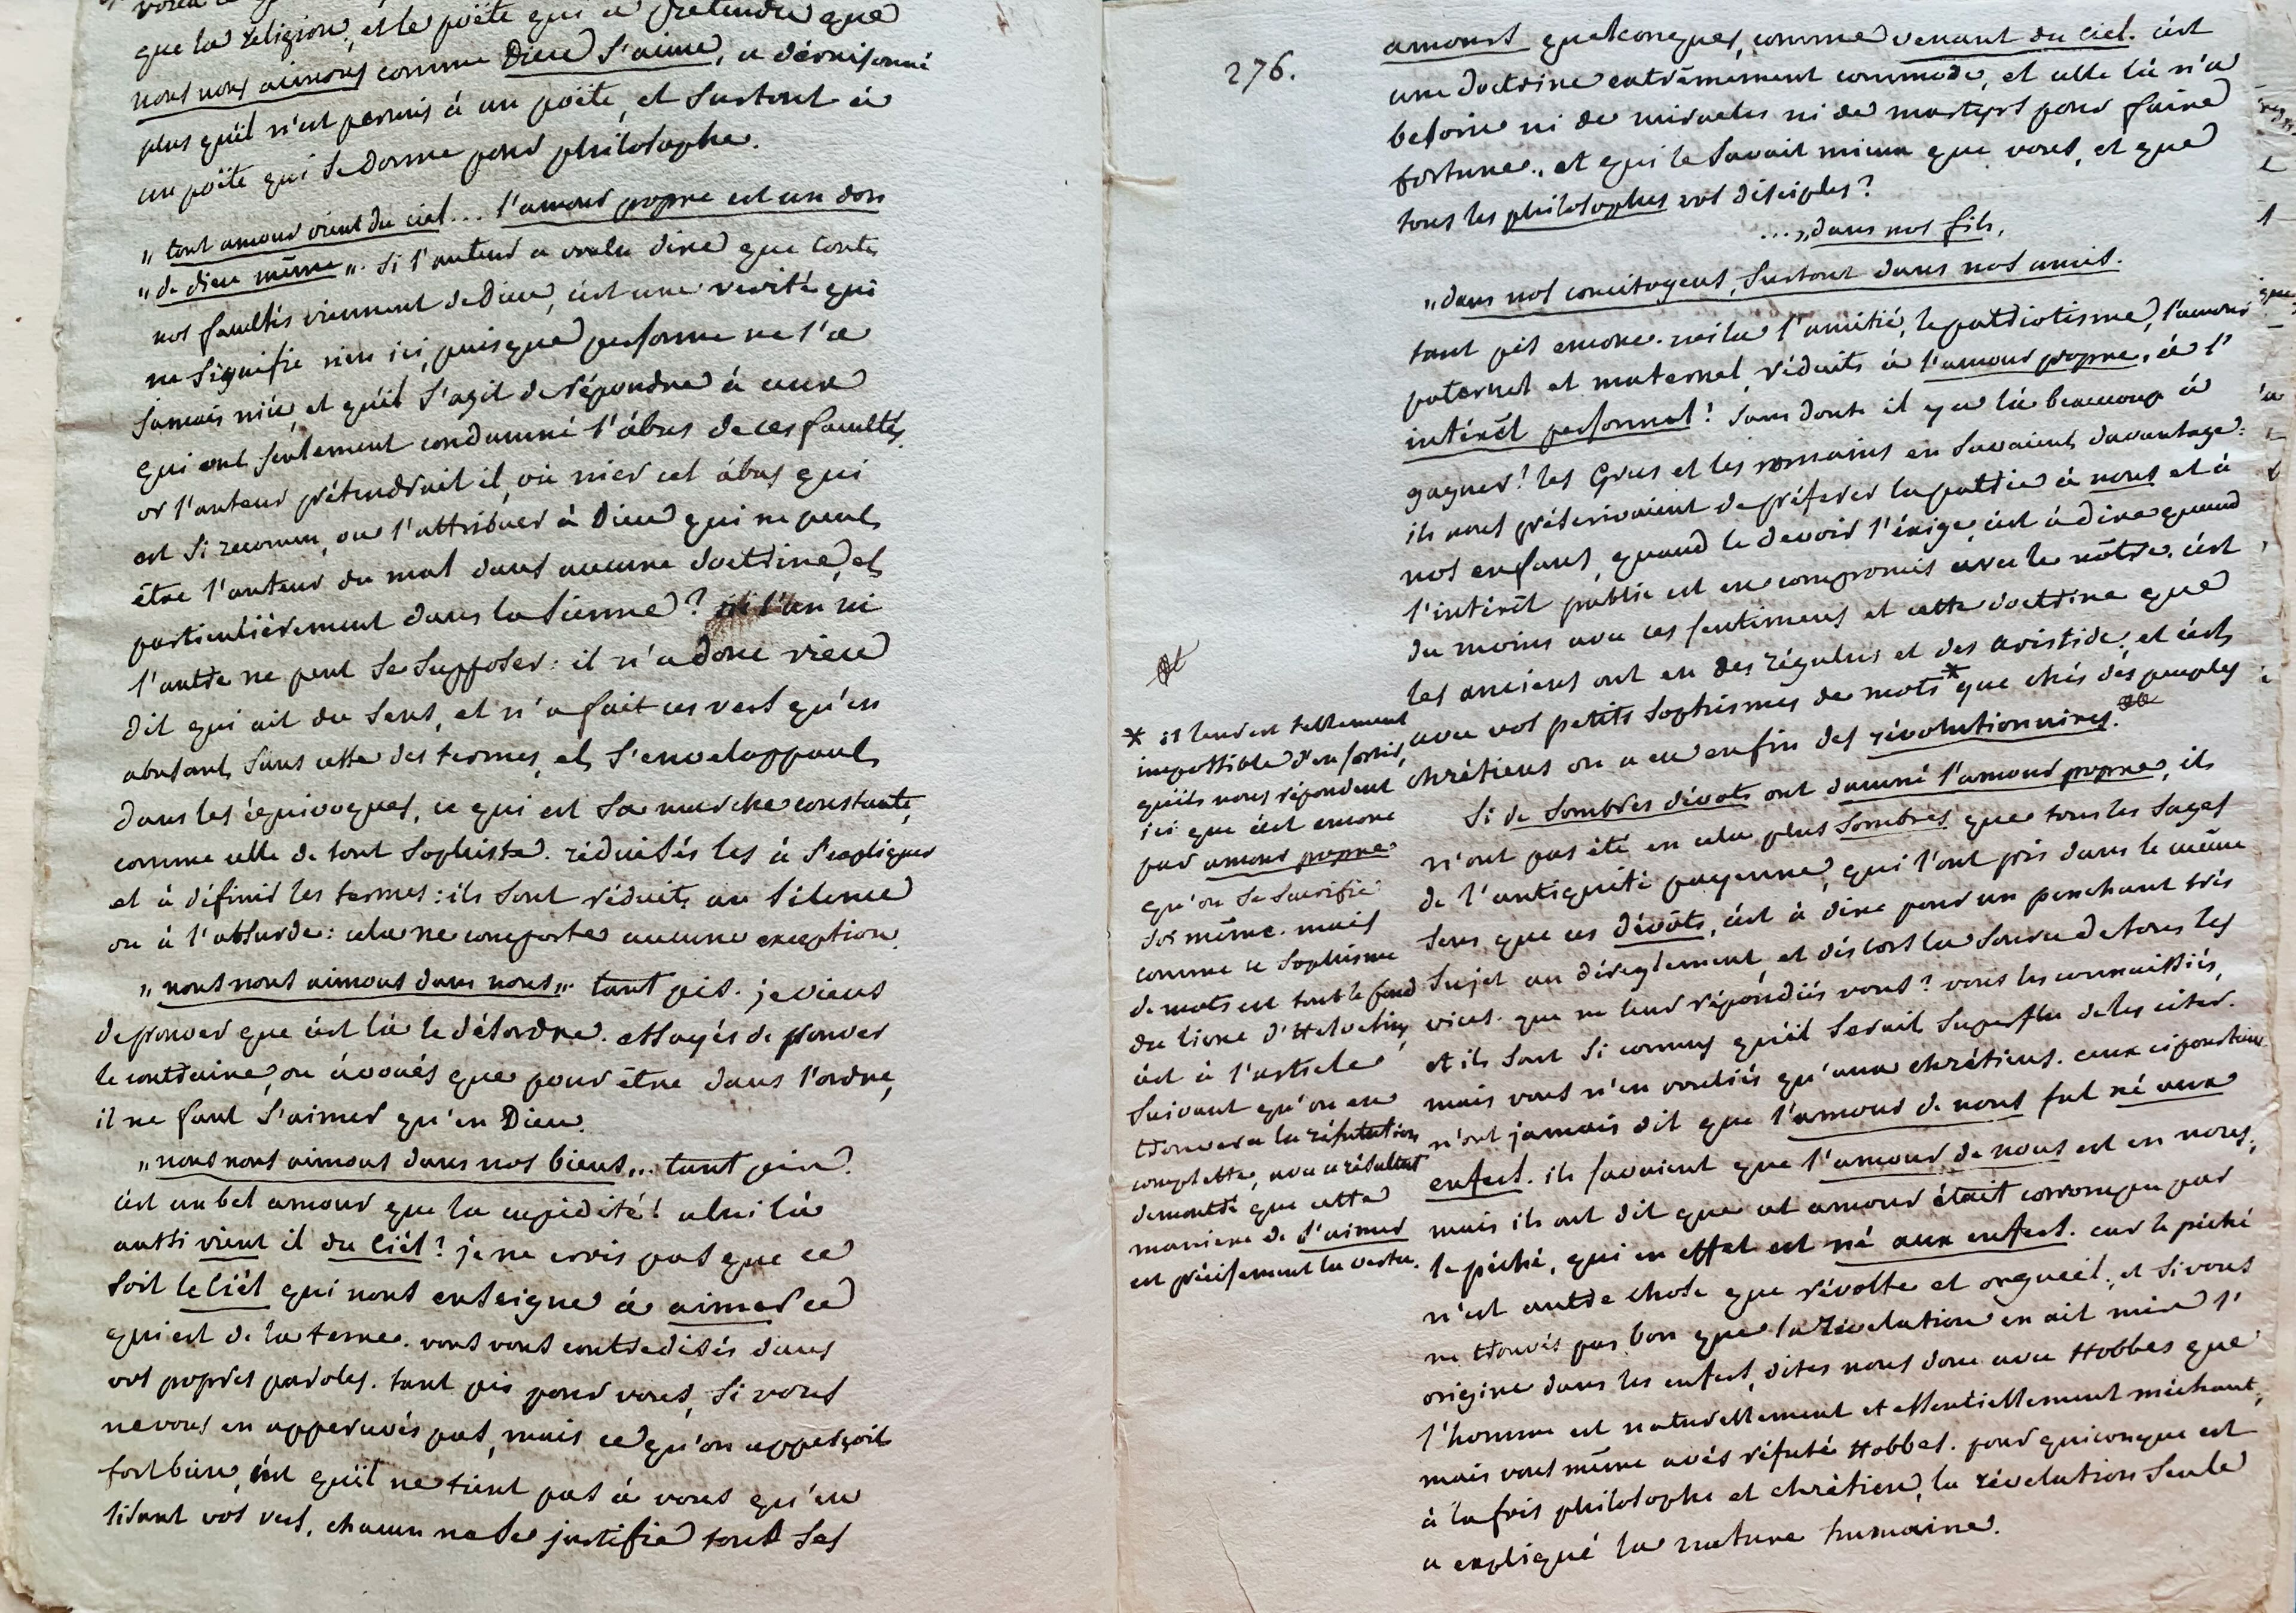 que la religion, et le poëte qui a prétendu que
nous nous aimons comme Dieu s'aime, a déraisonné
plus qu'il n'est permis à un poëte, et surtout à
un poëte qui se donne pour philosophe.
„ tout amour vient du ciel... l'amour propre est un don
„ de dieu même „. si l'auteur a voulu dire que toutes
nos facultés viennent de Dieu, c'est une verité qui
ne signifie rien ici, puisque personne ne l'a
jamais niée, et qu'il s'agit de répondre à ceux
qui ont seulement condamné l'abus de ces facultés.
or l'auteur prétendrait il, où nier cet abus qui
est si reconnu, ou l'attribuer à Dieu qui ne peut
être l'auteur du mal dans aucune doctrine, et
particulièrement dans la sienne? ni l'un ni
l'autre ne peut se supposer: il n'a donc rien
dit qui ait du sens, et n'a fait ces vers qu'en
abusant sans cesse des termes, et s'enveloppant
dans les équivoques, ce qui est sa marche constante,
comme celle de tout sophiste. réduisés les à s'expliquer
et à définir les termes: ils sont réduits au silence
ou à l'absurde: cela ne comporte aucune exception.
„ nous nous aimons dans nous „. tant pis. je viens
de prouver que c'est là le désordre. essayés de prouver
le contraire, ou avoués que pour être dans l'ordre,
il ne faut s'aimer qu'en Dieu.
„ nous nous aimons dans nos biens „... tant pire.
c'est un bel amour que la cupidité! celui là
aussi vient il du Ciel? je ne crois pas que ce
soit le Ciel qui nous enseigne à aimer ce
qui est de la terre. vous vous contredisés dans
vos propres paroles. tant pis pour vous, si vous
ne vous en appercevés pas, mais ce qu'on apperçoit
fort bien, c'est qu'il ne tient pas à vous qu'en
lisant vos vers, chacun ne se justifie tous ses
276.
amours quelconques, comme venant du Ciel. c'est
une doctrine extrêmement commode, et celle là n'a
besoin ni de miracles ni de martyrs pour faire
fortune, et qui le savait mieux que vous, et que
tous les philosophes vos disciples?
... „dans nos fils,
„ dans nos concitoyens, surtout dans nos amis.
tant pis encore. voila l'amitié, le patriotisme, l'amour
paternel et maternel, réduits à l'amour propre, à l'
intérêt personnel! sans doute il y a là beaucoup à
gagner! les Grecs et les romains en savaient davantage:
ils nous préscrivaient de préferer la patrie à nous et à
nos enfans, quand le devoir l'éxige, c'est à dire quand
l'intérêt public est en compromis avec le nôtre. c'est
du moins avec ces sentimens et cette doctrine que
les anciens ont eu des régulus et des aristide, et c'est
avec vos petits sophismes de mots * que chés des peuples
chrétiens on a eu enfin des révolutionnaires.
si de sombres dévots ont damné l'amour propre, ils
n'ont pas été en cela plus sombres que tous les sages
de l'antiquité payenne, qui l'ont pris dans le même
sens que ces dévôts, c'est à dire pour un penchant très
sujet au déreglement, et dès lors la source de tous les
vices. que ne leur répondiés vous? vous les connaissiés,
et ils sont si connus qu'il serait superflu de les citer.
mais vous n'en vouliés qu'aux chrétiens. ceux ci pourtant
n'ont jamais dit que l'amour de nous fut né aux
enfers. ils savaient que l'amour de nous est en nous;
mais ils ont dit que cet amour était corrompu par
le péché, qui en effet est né aux enfers. car le péché
n'est autre chose que révolte et orgueil, et si vous
ne trouvés pas bon que la révelation en ait mis l'
origine dans les enfers, dites nous donc avec Hobbes que
l'homme est naturellement et essentiellement méchant,
mais vous même avés réfuté Hobbes. pour quiconque est
à la fois philosophe et chrétien, la révelation seule
a expliqué la nature humaine.
* il leur est tellement
impossible d'en sortir,
qu'ils nous répondent
ici que c'est encore
par amour propre
qu'on se sacrifie
soi même. mais
comme ce sophisme
de mots est tout le fond
du livre d'Helvetius,
c'est à l'article
suivant qu'on en
trouvera la réfutation
complette, avec ce résultat
demontré que cette
maniere de s'aimer
est précisement la vertu.